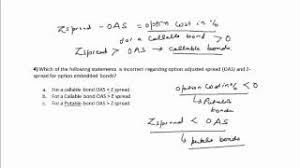 Zspread - OAS = option cost in %
for a Callable bond > 0
Zspread > OAS → callable bonds
4) Which of the following statements is incorrect regarding option adjusted spread (OAS) and Z-
spread for option embedded bonds?
a. For a callable bond OAS < Z spread
b. For a callable bond OAS > Z spread
c. For a Putable bond OAS > Z spread
option cost in % < 0
↳ Putable bonds
Zspread < OAS
↳ putable bonds